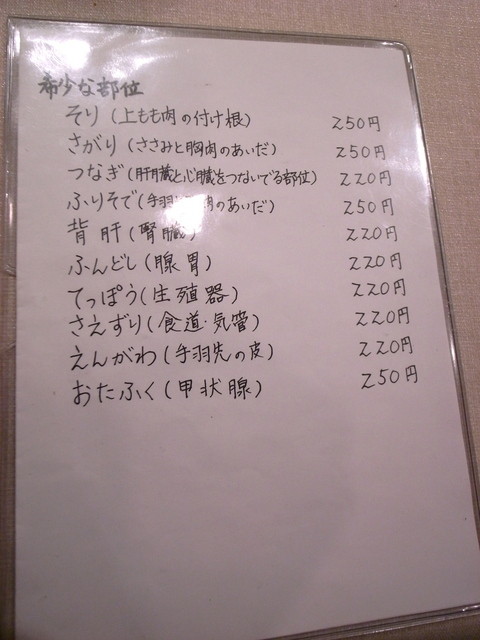 希少な部位
そり(上もも肉の付け根) 250円
さがり(ささみと胸肉のあいだ) 250円
つなぎ(肝臓と心臓をつないでる部位) 220円
ふりそで(手羽 肉のあいだ) 250円
背肝(腎臓) 220円
ふんどし(腺胃) 220円
てっぽう(生殖器) 220円
さえずり(食道・気管) 220円
えんがわ(手羽先の皮) 220円
おたふく(甲状腺) 250円